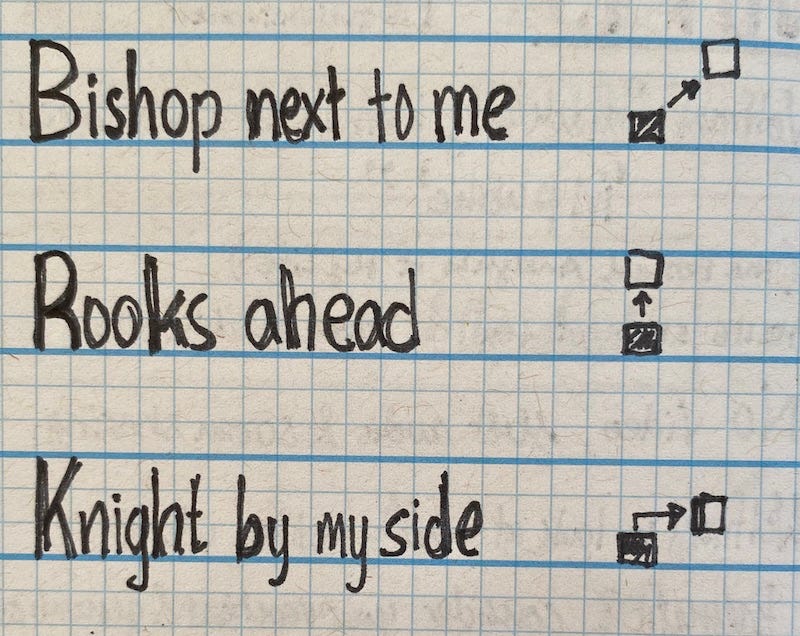 Bishop next to me
Rooks ahead
Knight by my side